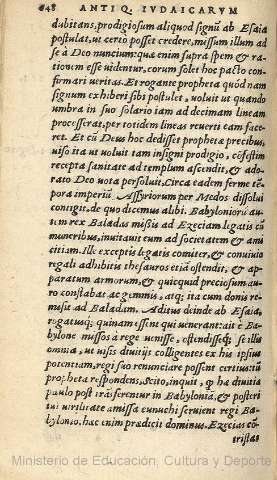 648 ANTIQ. IVDAICARVM
dubitans, prodigiosum aliquod signũ ab Esaia
postulat, ut certo posset credere, missum illum ad
se à Deo nuncium: quæ enim supra spem & ra-
tionem esse uidentur, eorum solet hoc pacto con-
firmari ueritas. Et rogante propheta quod nam
signum exhiberi sibi postulet, uoluit ut quando
umbra in suo solario iam ad decimam lineam
processerat, per totidem lineas reuerti eam face-
ret. Et cũ Deus hoc dedisset prophetæ precibus,
uiso ita ut uoluit tam insigni prodigio, cõfestim
recepta sanitate ad templum ascendit, & ado-
rato Deo uota persoluit. Circa eadem ferme tẽ-
pora imperiũ Assyriorum per Medos dissolui
contigit, de quo dicemus alibi. Babyloniorũ au-
tem rex Baladas missis ad Ezeciam legatis cũ
muneribus, inuitauit eum ad societatem & ami
citiam. Ille exceptis legatis comiter, & conuiuio
regali adhibitis thesauros etiã ostendit, & ap-
paratum armorum, & quicquid preciosum au-
ro constabat ac gemmis, atq; ita cum donis re-
misit ad Baladam. Aditus deinde ab Esaia,
rogatusq; quinam essent qui uenerant: ait e Ba-
bylone missos a rege uenisse, ostendisseq; se illis
omnia, ut uisis diuitijs colligentes ex his ipsius
potentiam, regi suo renunciare possent certius. tũ
propheta respondens, Scito, inquit, ꝙ hæ diuitiæ
paulo post trãsferentur in Babyloniã, & posteri
tui uirilitate amissa eunuchi seruient regi Ba-
bylonio, hæc enim prædicit dominus. Ezecias cõ
tristatus
Ministerio de Educación, Cultura y Deporte